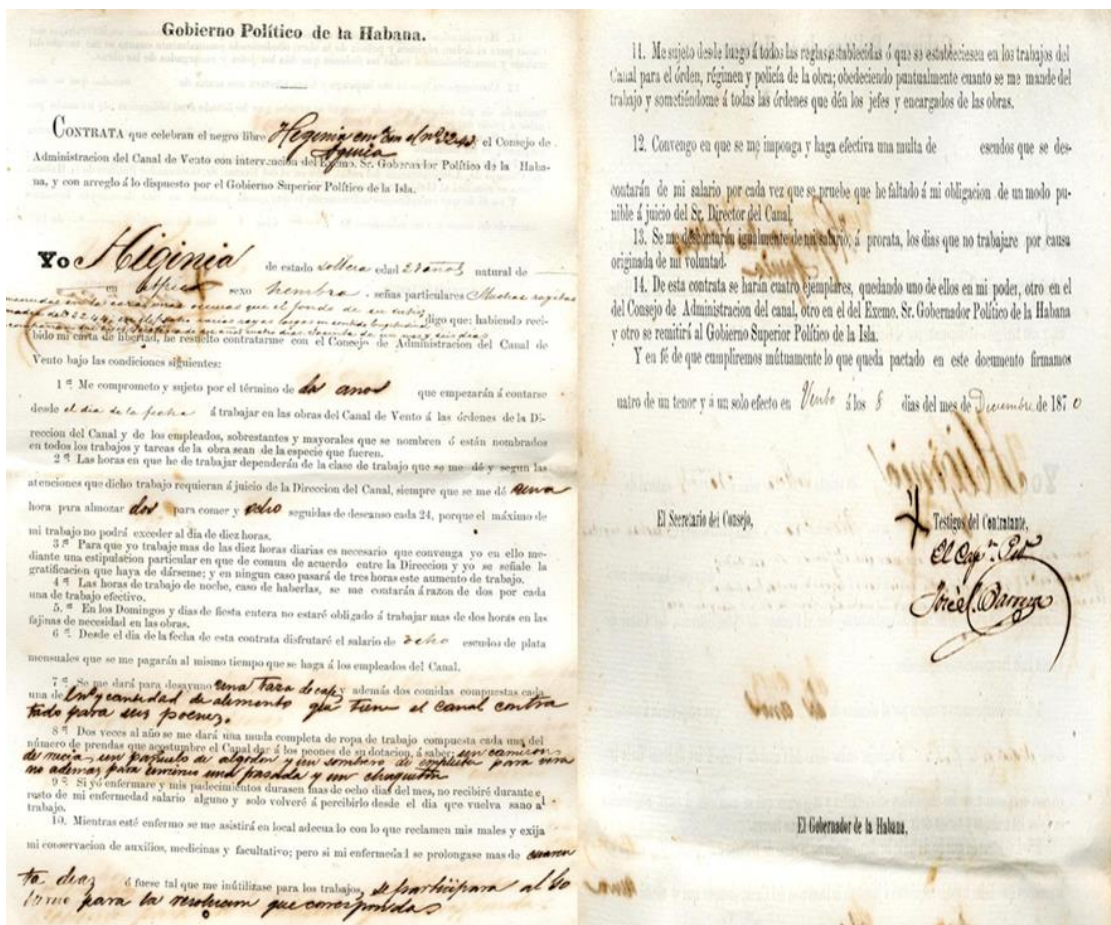 Gobierno Político de la Habana.
CONTRATA que celebran el negro libre Heginia el Consejo de
Administracion del Canal de Vento con intervencion del Excmo. Sr. Gobernador Político de la Haba-
na, y con arreglo á lo dispuesto por el Gobierno Superior Político de la Isla.
Yo Higinia de estado soltera edad 28 años natural de
en Africa sexo hembra señas particulares Muchas rayitas
digo que: habiendo reci-
bido mi carta de libertad, he resuelto contratarme con el Concejo de Administracion del Canal de
Vento bajo las condiciones siguientes:
1ª Me comprometo y sujeto por el término de años que empezarán á contarse
desde el dia de la fecha á trabajar en las obras del Canal de Vento á las órdenes de la Di-
reccion del Canal y de los empleados, sobrestantes y mayorales que se nombren ó están nombrados
en todos los trabajos y tareas de la obra sean de la especie que fueren.
2ª Las horas en que he de trabajar dependerán de la clase de trabajo que se me dé y segun las
atenciones que dicho trabajo requieran á juicio de la Direccion del Canal, siempre que se me dé una
hora para almozar dos para comer y ocho seguidas de descanso cada 24, porque el máximo de
mi trabajo no podrá exceder al dia de diez horas.
3ª Para que yo trabaje mas de las diez horas diarias es necesario que convenga yo en ello me-
diante una estipulacion particular en que de comun de acuerdo entre la Direccion y yo se señale la
gratificacion que haya de dárseme; y en ningun caso pasará de tres horas este aumento de trabajo.
4ª Las horas de trabajo de noche, caso de haberlas, se me contarán á razon de dos por cada
una de trabajo efectivo.
5.ª En los Domingos y dias de fiesta entera no estaré obligado á trabajar mas de dos horas en las
fajinas de necesidad en las obras.
6ª Desde el dia de la fecha de esta contrata disfrutaré el salario de ocho escudos de plata
mensuales que se me pagarán al mismo tiempo que se haga á los empleados del Canal.
7ª Se me dará para desayuno una taza de café y además dos comidas compuestas cada
una de y cantidad de alimento que tiene el canal contra
tado para sus peones.
8ª Dos veces al año se me dará una muda completa de ropa de trabajo compuesta cada una del
número de prendas que acostumbre el Canal dar á los peones de su dotacion, á saber; un camison
de rucia, un pañuelo de algodon y un sombrero de empleita para vera
no ademas para invierno una frasada y un chaqueton
9ª Si yó enfermare y mis padecimientos durasen mas de ocho dias del mes, no recibiré durante e
resto de mi enfermedad salario alguno y solo volveré a percibirlo desde el dia que vuelva sano al
trabajo.
10. Mientras esté enfermo se me asistirá en local adecuado con lo que reclamen mis males y exija
mi conservacion de auxilios, medicinas y facultativo; pero si mi enfermedad se prolongase mas de cuaren
ta dias ó fuese tal que me inútilizase para los trabajos, se participara al Go
bierno para la resolucion que corresponda
11. Me sujeto desde luego á todos las reglas establecidas ó que se estableciesen en los trabajos del
Canal para el órden, régimen y policía de la obra; obedeciendo puntualmente cuanto se me mande del
trabajo y sometiéndome á todas las órdenes que dén los jefes y encargados de las obras.
12. Convengo en que se me imponga y haga efectiva una multa de escudos que se des-
contarán de mi salario por cada vez que se pruebe que he faltado á mi obligacion de un modo pu-
nible á juicio del Sr. Director del Canal.
13. Se me descontarán igualmente de mi salario, á prorata, los dias que no trabajare por causa
originada de mi voluntad.
14. De esta contrata se harán cuatro ejemplares, quedando uno de ellos en mi poder, otro en el
del Consejo de Administracion del canal, otro en el del Excmo. Sr. Gobernador Político de la Habana
y otro se remitirá al Gobierno Superior Político de la Isla.
Y en fé de que cumpliremos mútuamente lo que queda pactado en este documento firmamos
uatro de un tenor y á un solo efecto en Vento á los 8 dias del mes de Diciembre de 1870
El Secretario del Consejo,
Testigos del Contratante,
El Gobernador de la Habana.